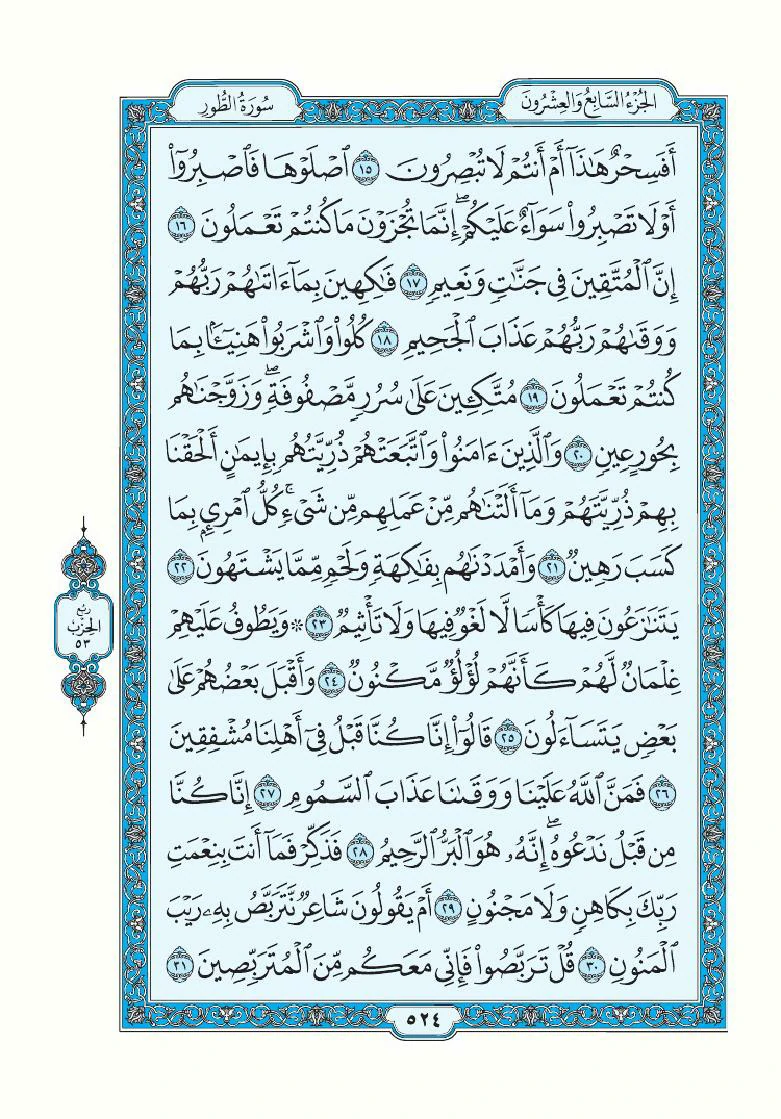 الجزء السابع والعشرون
سورة الطور
أَفَسِحْرٌ هَـٰذَآ أَمْ أَنتُمْ لَا تُبْصِرُونَ ١٥ ٱصْلَوْهَا فَٱصْبِرُوٓا۟
أَوْ لَا تَصْبِرُوا۟ سَوَآءٌ عَلَيْكُمْ ۖ إِنَّمَا تُجْزَوْنَ مَا كُنتُمْ تَعْمَلُونَ ١٦
إِنَّ ٱلْمُتَّقِينَ فِى جَنَّـٰتٍ وَنَعِيمٍ ١٧ فَـٰكِهِينَ بِمَآ ءَاتَىٰهُمْ رَبُّهُمْ
وَوَقَىٰهُمْ رَبُّهُمْ عَذَابَ ٱلْجَحِيمِ ١٨ كُلُوا۟ وَٱشْرَبُوا۟ هَنِيٓـًٔۢا بِمَا
كُنتُمْ تَعْمَلُونَ ١٩ مُتَّكِـِٔينَ عَلَىٰ سُرُرٍ مَّصْفُوفَةٍ ۖ وَزَوَّجْنَـٰهُم
بِحُورٍ عِينٍ ٢٠ وَٱلَّذِينَ ءَامَنُوا۟ وَٱتَّبَعَتْهُمْ ذُرِّيَّتُهُم بِإِيمَـٰنٍ أَلْحَقْنَا
بِهِمْ ذُرِّيَّتَهُمْ وَمَآ أَلَتْنَـٰهُم مِّنْ عَمَلِهِم مِّن شَىْءٍ ۚ كُلُّ ٱمْرِئٍۭ بِمَا
كَسَبَ رَهِينٌ ٢١ وَأَمْدَدْنَـٰهُم بِفَـٰكِهَةٍ وَلَحْمٍ مِّمَّا يَشْتَهُونَ ٢٢
يَتَنَـٰزَعُونَ فِيهَا كَأْسًا لَّا لَغْوٌ فِيهَا وَلَا تَأْثِيمٌ ٢٣ ۞ وَيَطُوفُ عَلَيْهِمْ
غِلْمَانٌ لَّهُمْ كَأَنَّهُمْ لُؤْلُؤٌ مَّكْنُونٌ ٢٤ وَأَقْبَلَ بَعْضُهُمْ عَلَىٰ
بَعْضٍ يَتَسَآءَلُونَ ٢٥ قَالُوٓا۟ إِنَّا كُنَّا قَبْلُ فِىٓ أَهْلِنَا مُشْفِقِينَ
٢٦ فَمَنَّ ٱللَّهُ عَلَيْنَا وَوَقَىٰنَا عَذَابَ ٱلسَّمُومِ ٢٧ إِنَّا كُنَّا
مِن قَبْلُ نَدْعُوهُ ۖ إِنَّهُۥ هُوَ ٱلْبَرُّ ٱلرَّحِيمُ ٢٨ فَذَكِّرْ فَمَآ أَنتَ بِنِعْمَتِ
رَبِّكَ بِكَاهِنٍ وَلَا مَجْنُونٍ ٢٩ أَمْ يَقُولُونَ شَاعِرٌ نَّتَرَبَّصُ بِهِۦ رَيْبَ
ٱلْمَنُونِ ٣٠ قُلْ تَرَبَّصُوا۟ فَإِنِّى مَعَكُم مِّنَ ٱلْمُتَرَبِّصِينَ ٣١
ربع
الحزب
٥٣
٥٢٤